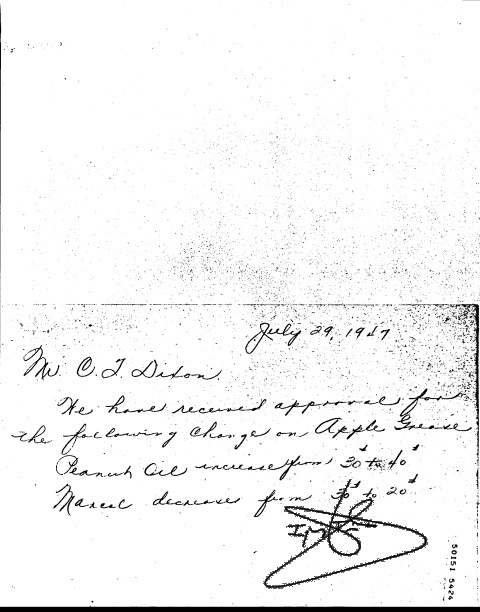 July 29, 1947
Mr. C. T. Dixon.
We have received approval for
the following change on Apple Grease
Peanut Oil increase from 30# to 40#
decrease from 30# to 20#
50151 5424